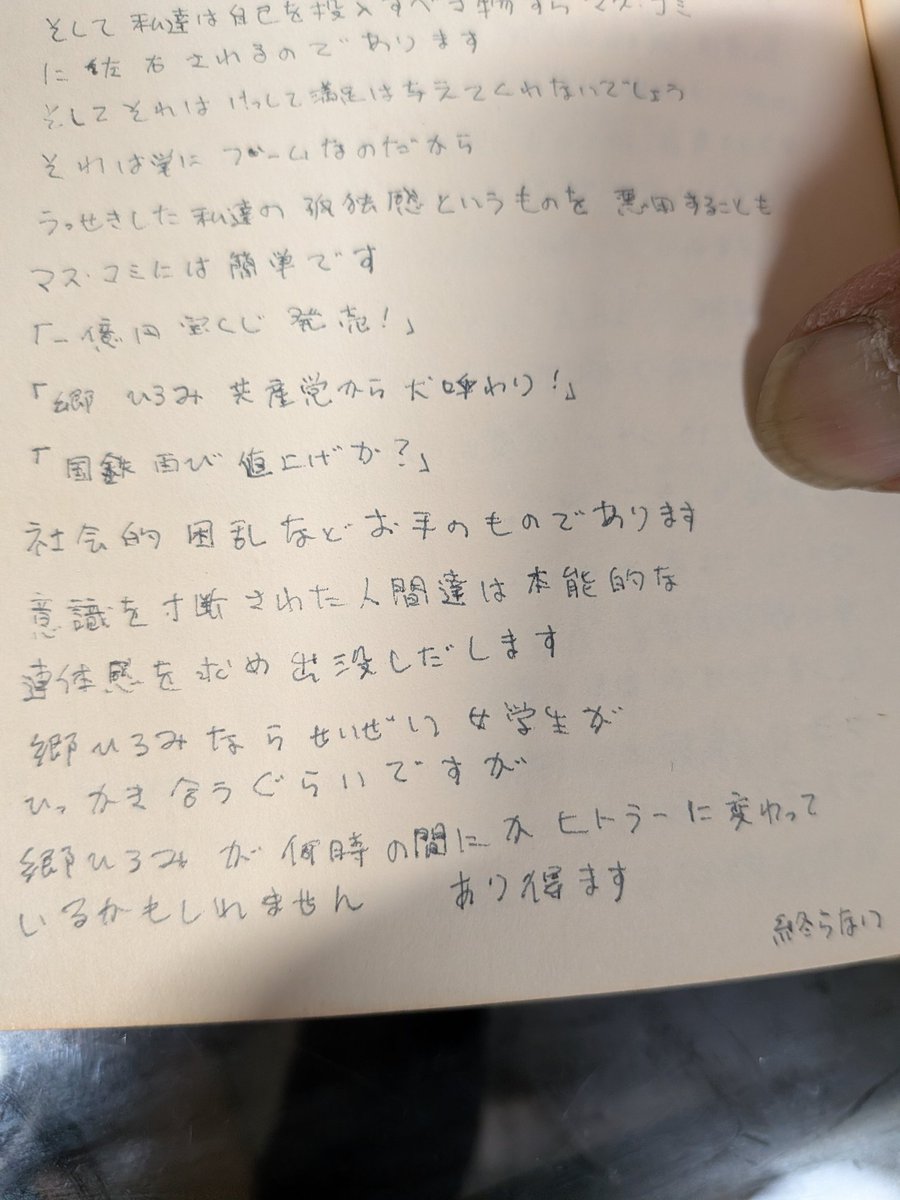 そして私達は自己を投入すべき物すらマス・コミ
に左右されるのであります
そしてそれはけっして満足は与えてくれないでしょう
それは単にブームなのだから
うっせきした私達の孤独感というものを 悪用することも
マス・コミには簡単です
「一億円宝くじ 発売!」
「郷 ひろみ 共産党から 犬呼わり!」
「国鉄 再び 値上げか?」
社会的 困乱などお手のものであります
意識を寸断された人間達は本能的な
連体感を求め出没しだします
郷ひろみならせいぜい女学生が
ひっかき合うぐらいですが
郷ひろみが何時の間にかヒトラーに変わって
いるかもしれません あり得ます
終らない